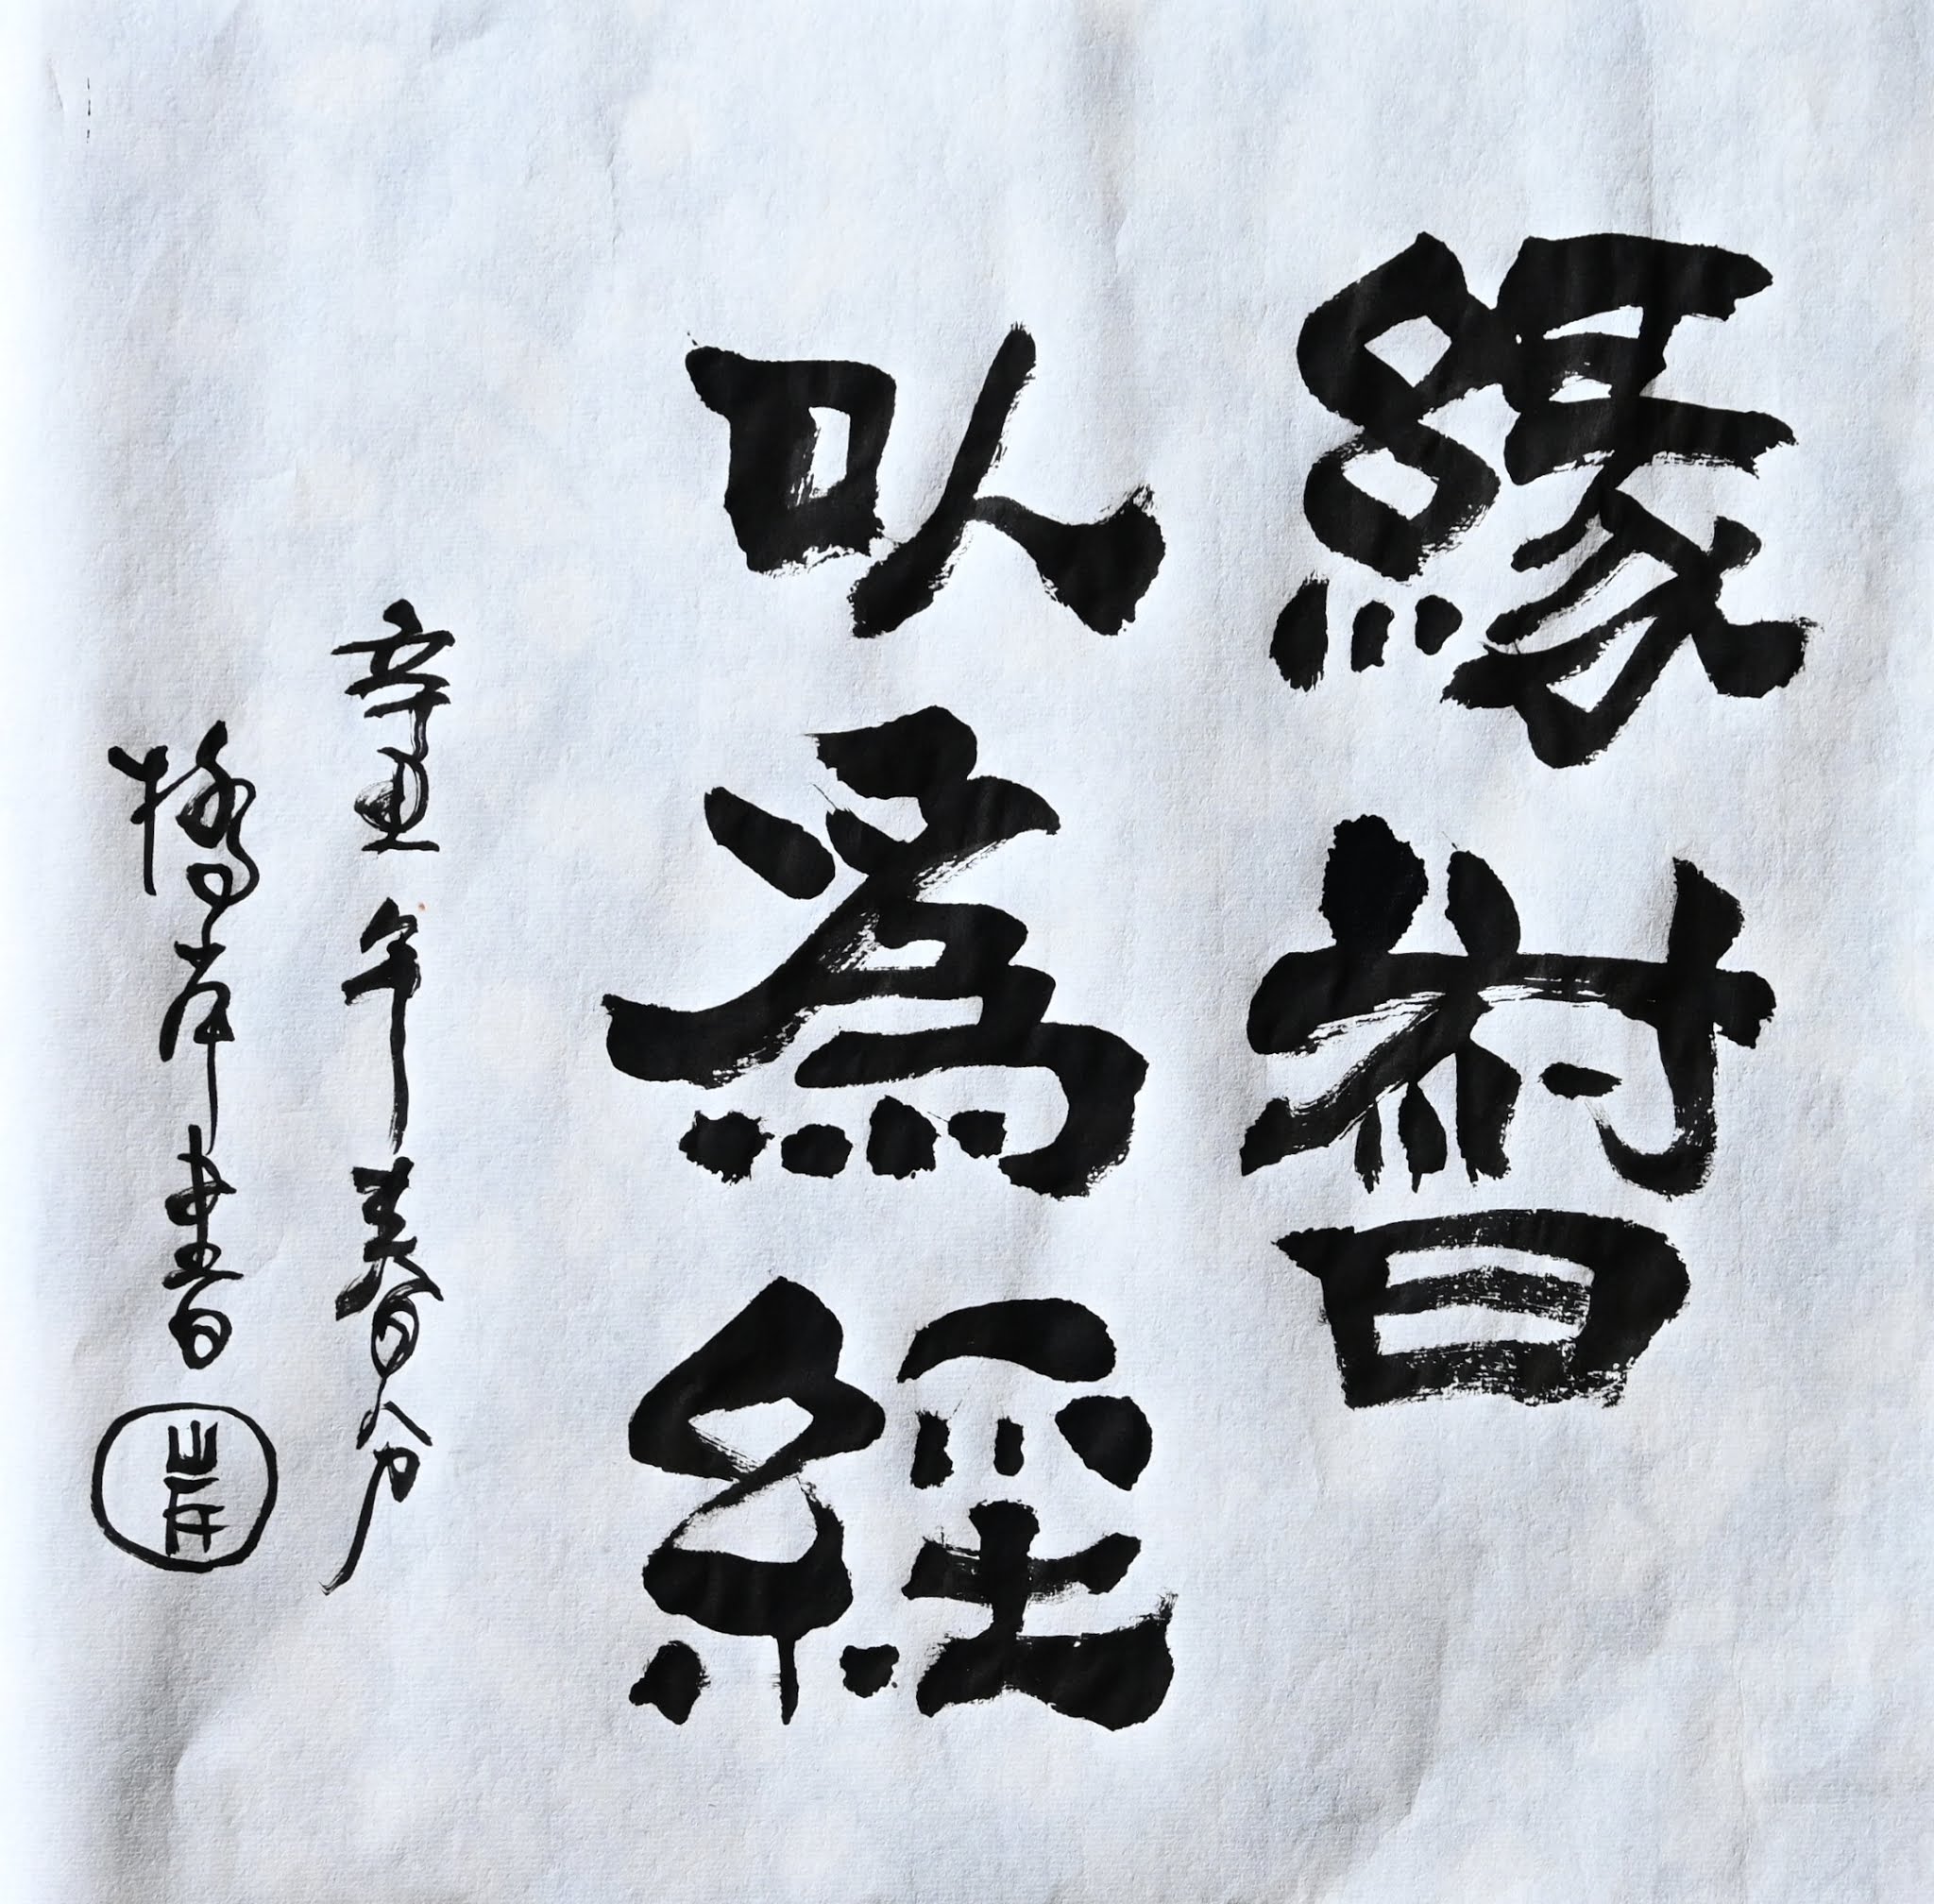 緣督
以爲經
辛丑年春分
橋岸書
岸